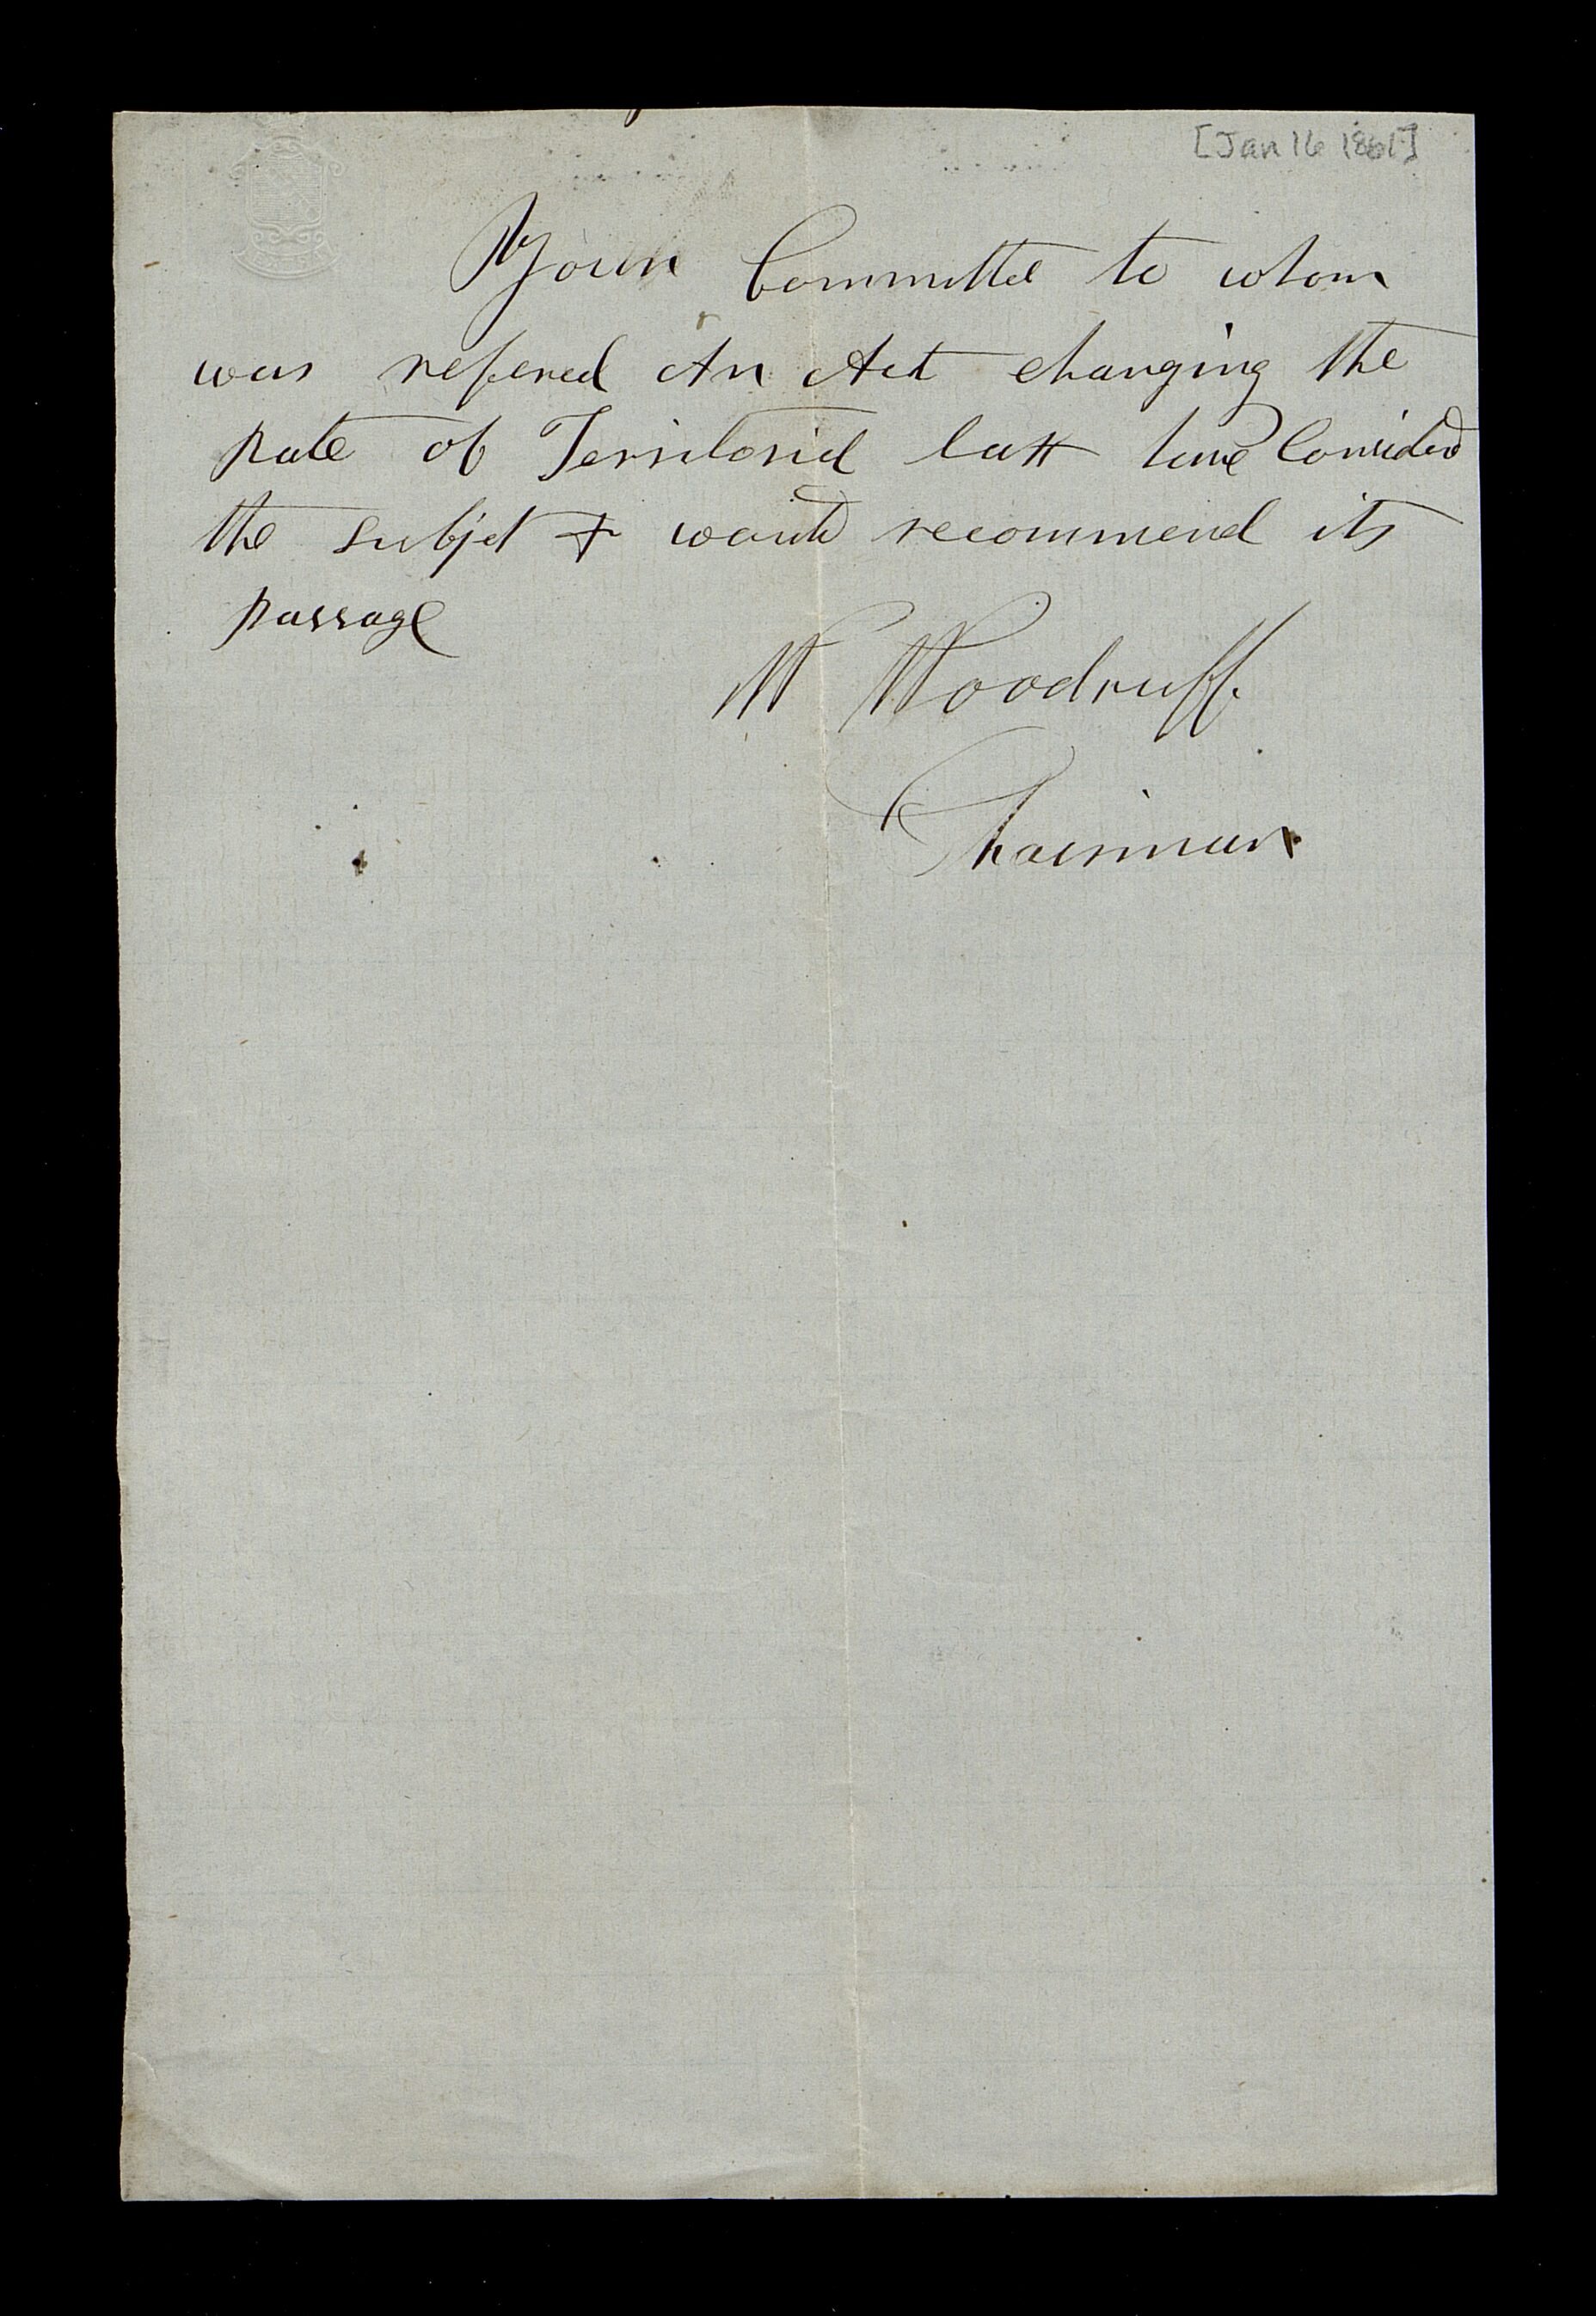 [Jan 16 1861]
Your Committee to whom
was refered An Act changing the
rate of Territorial taxx have Considerd
the subjet & would recommend its
passage
W Woodruff.
Chairman